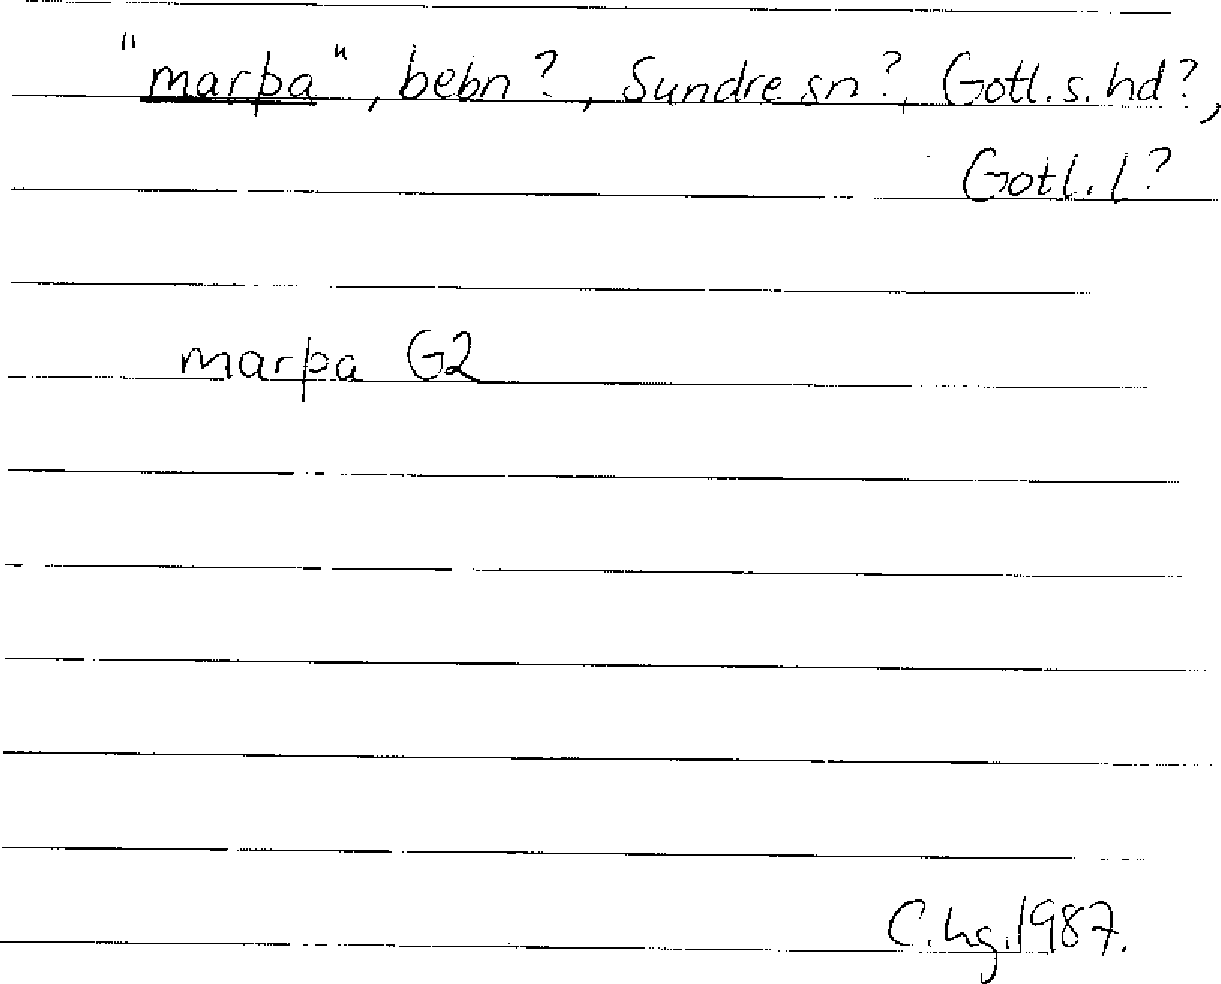 "marþa", bebn?, Sundre sn?, Gotl. s. hd?,
Gotl. l?
marþa G2
C.hg. 1987.